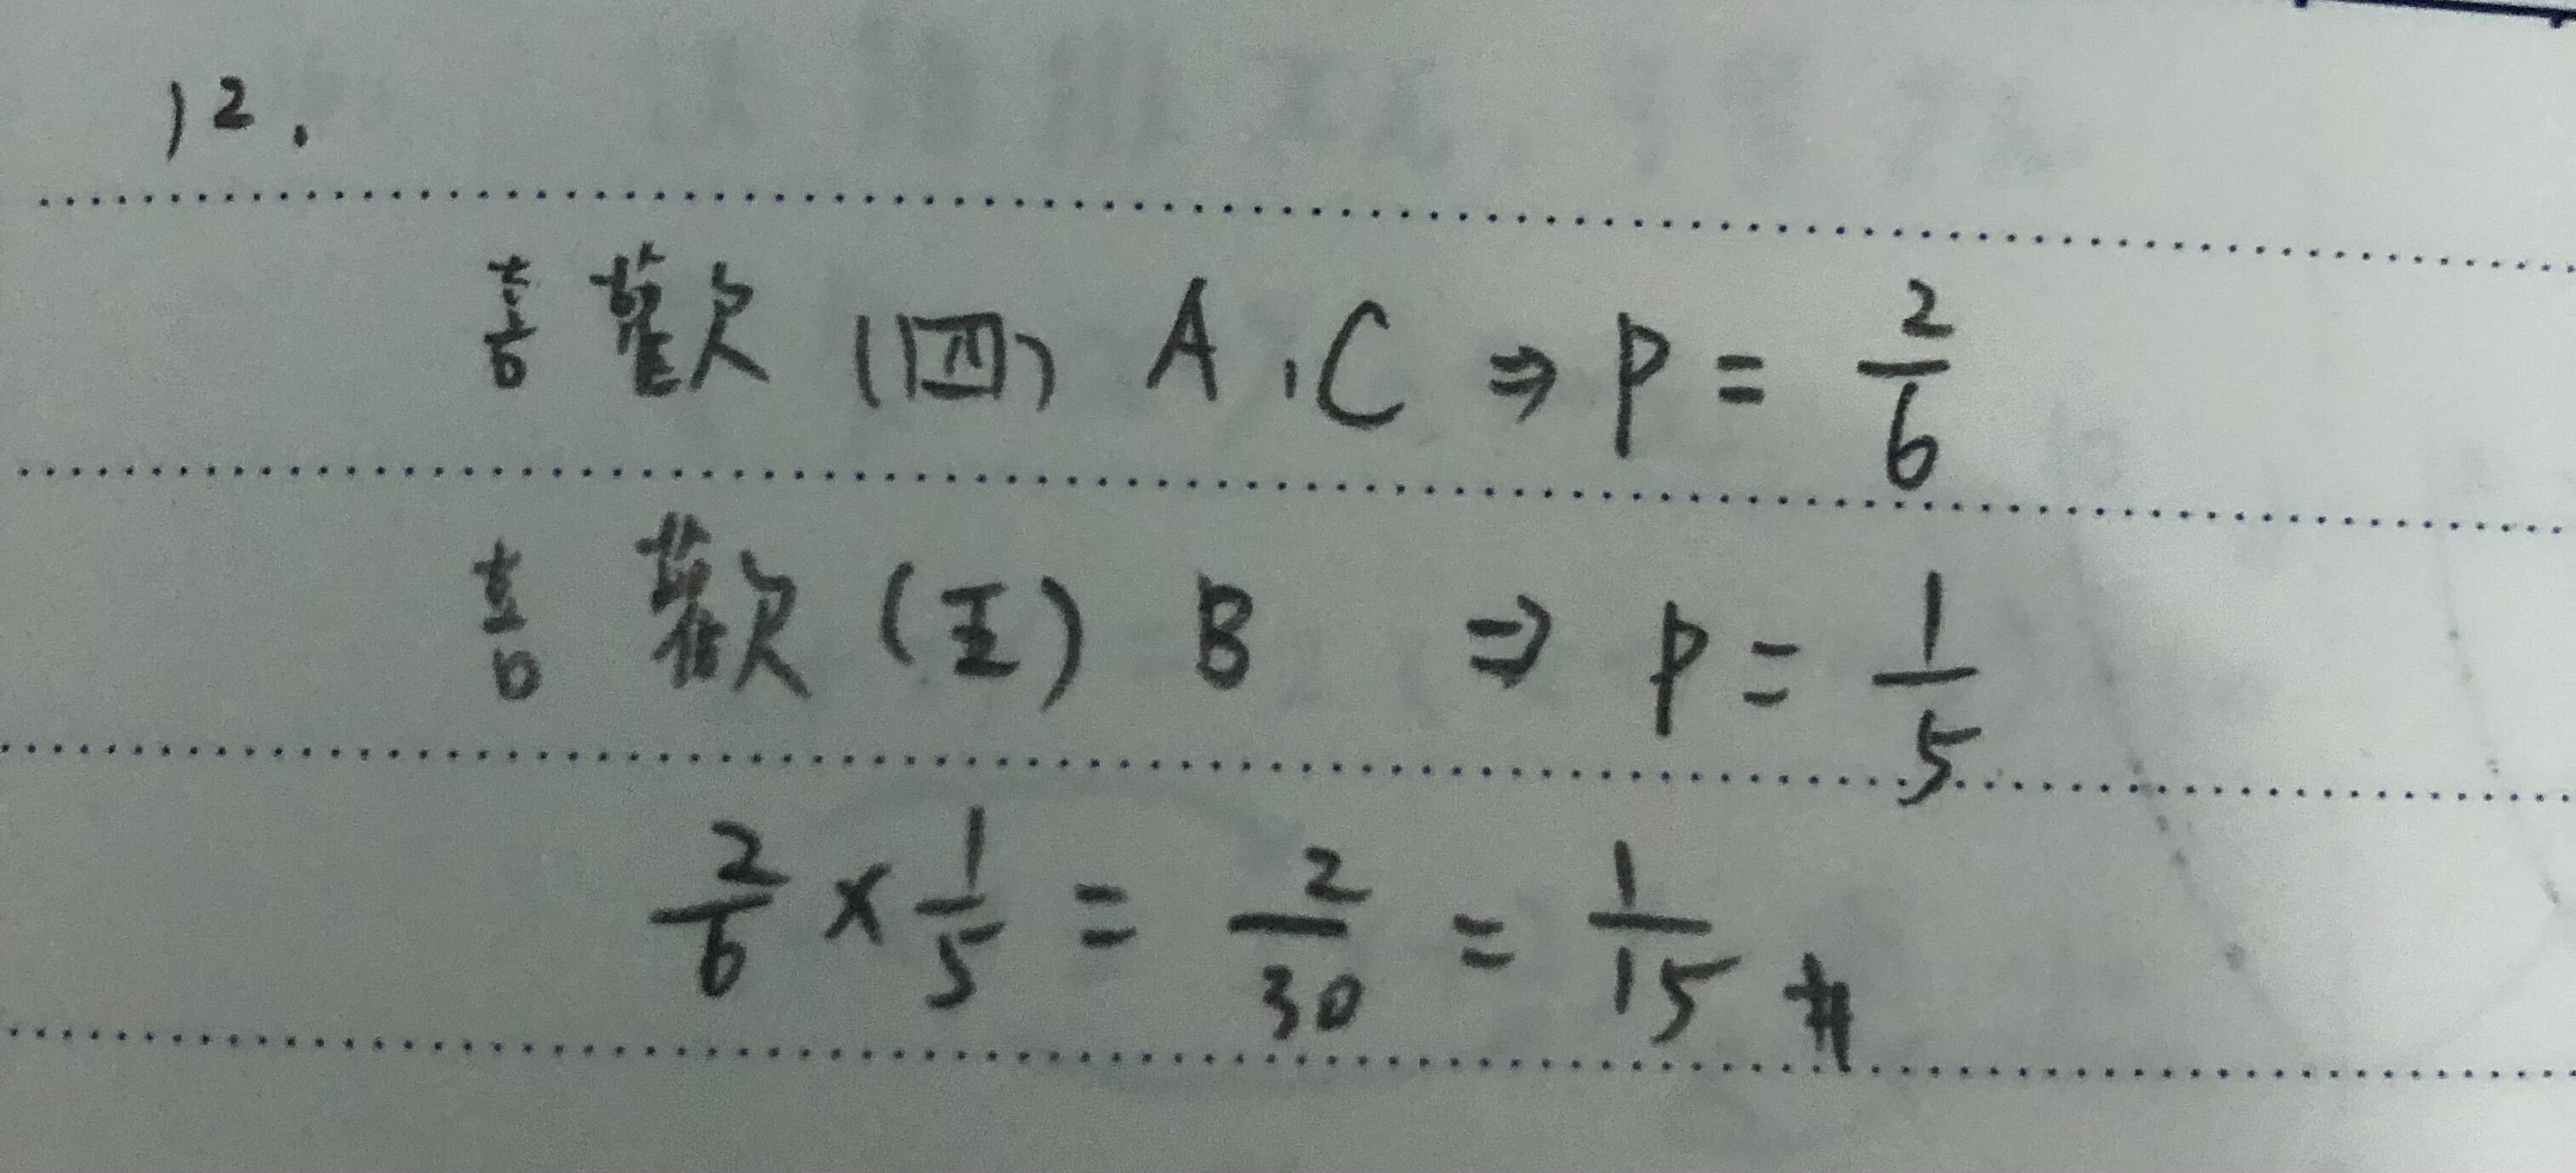 12.
喜歡(四) A,C ⇒ P = 2/6
喜歡(王) B ⇒ P = 1/5
2/6 × 1/5 = 2/30 = 1/15 #